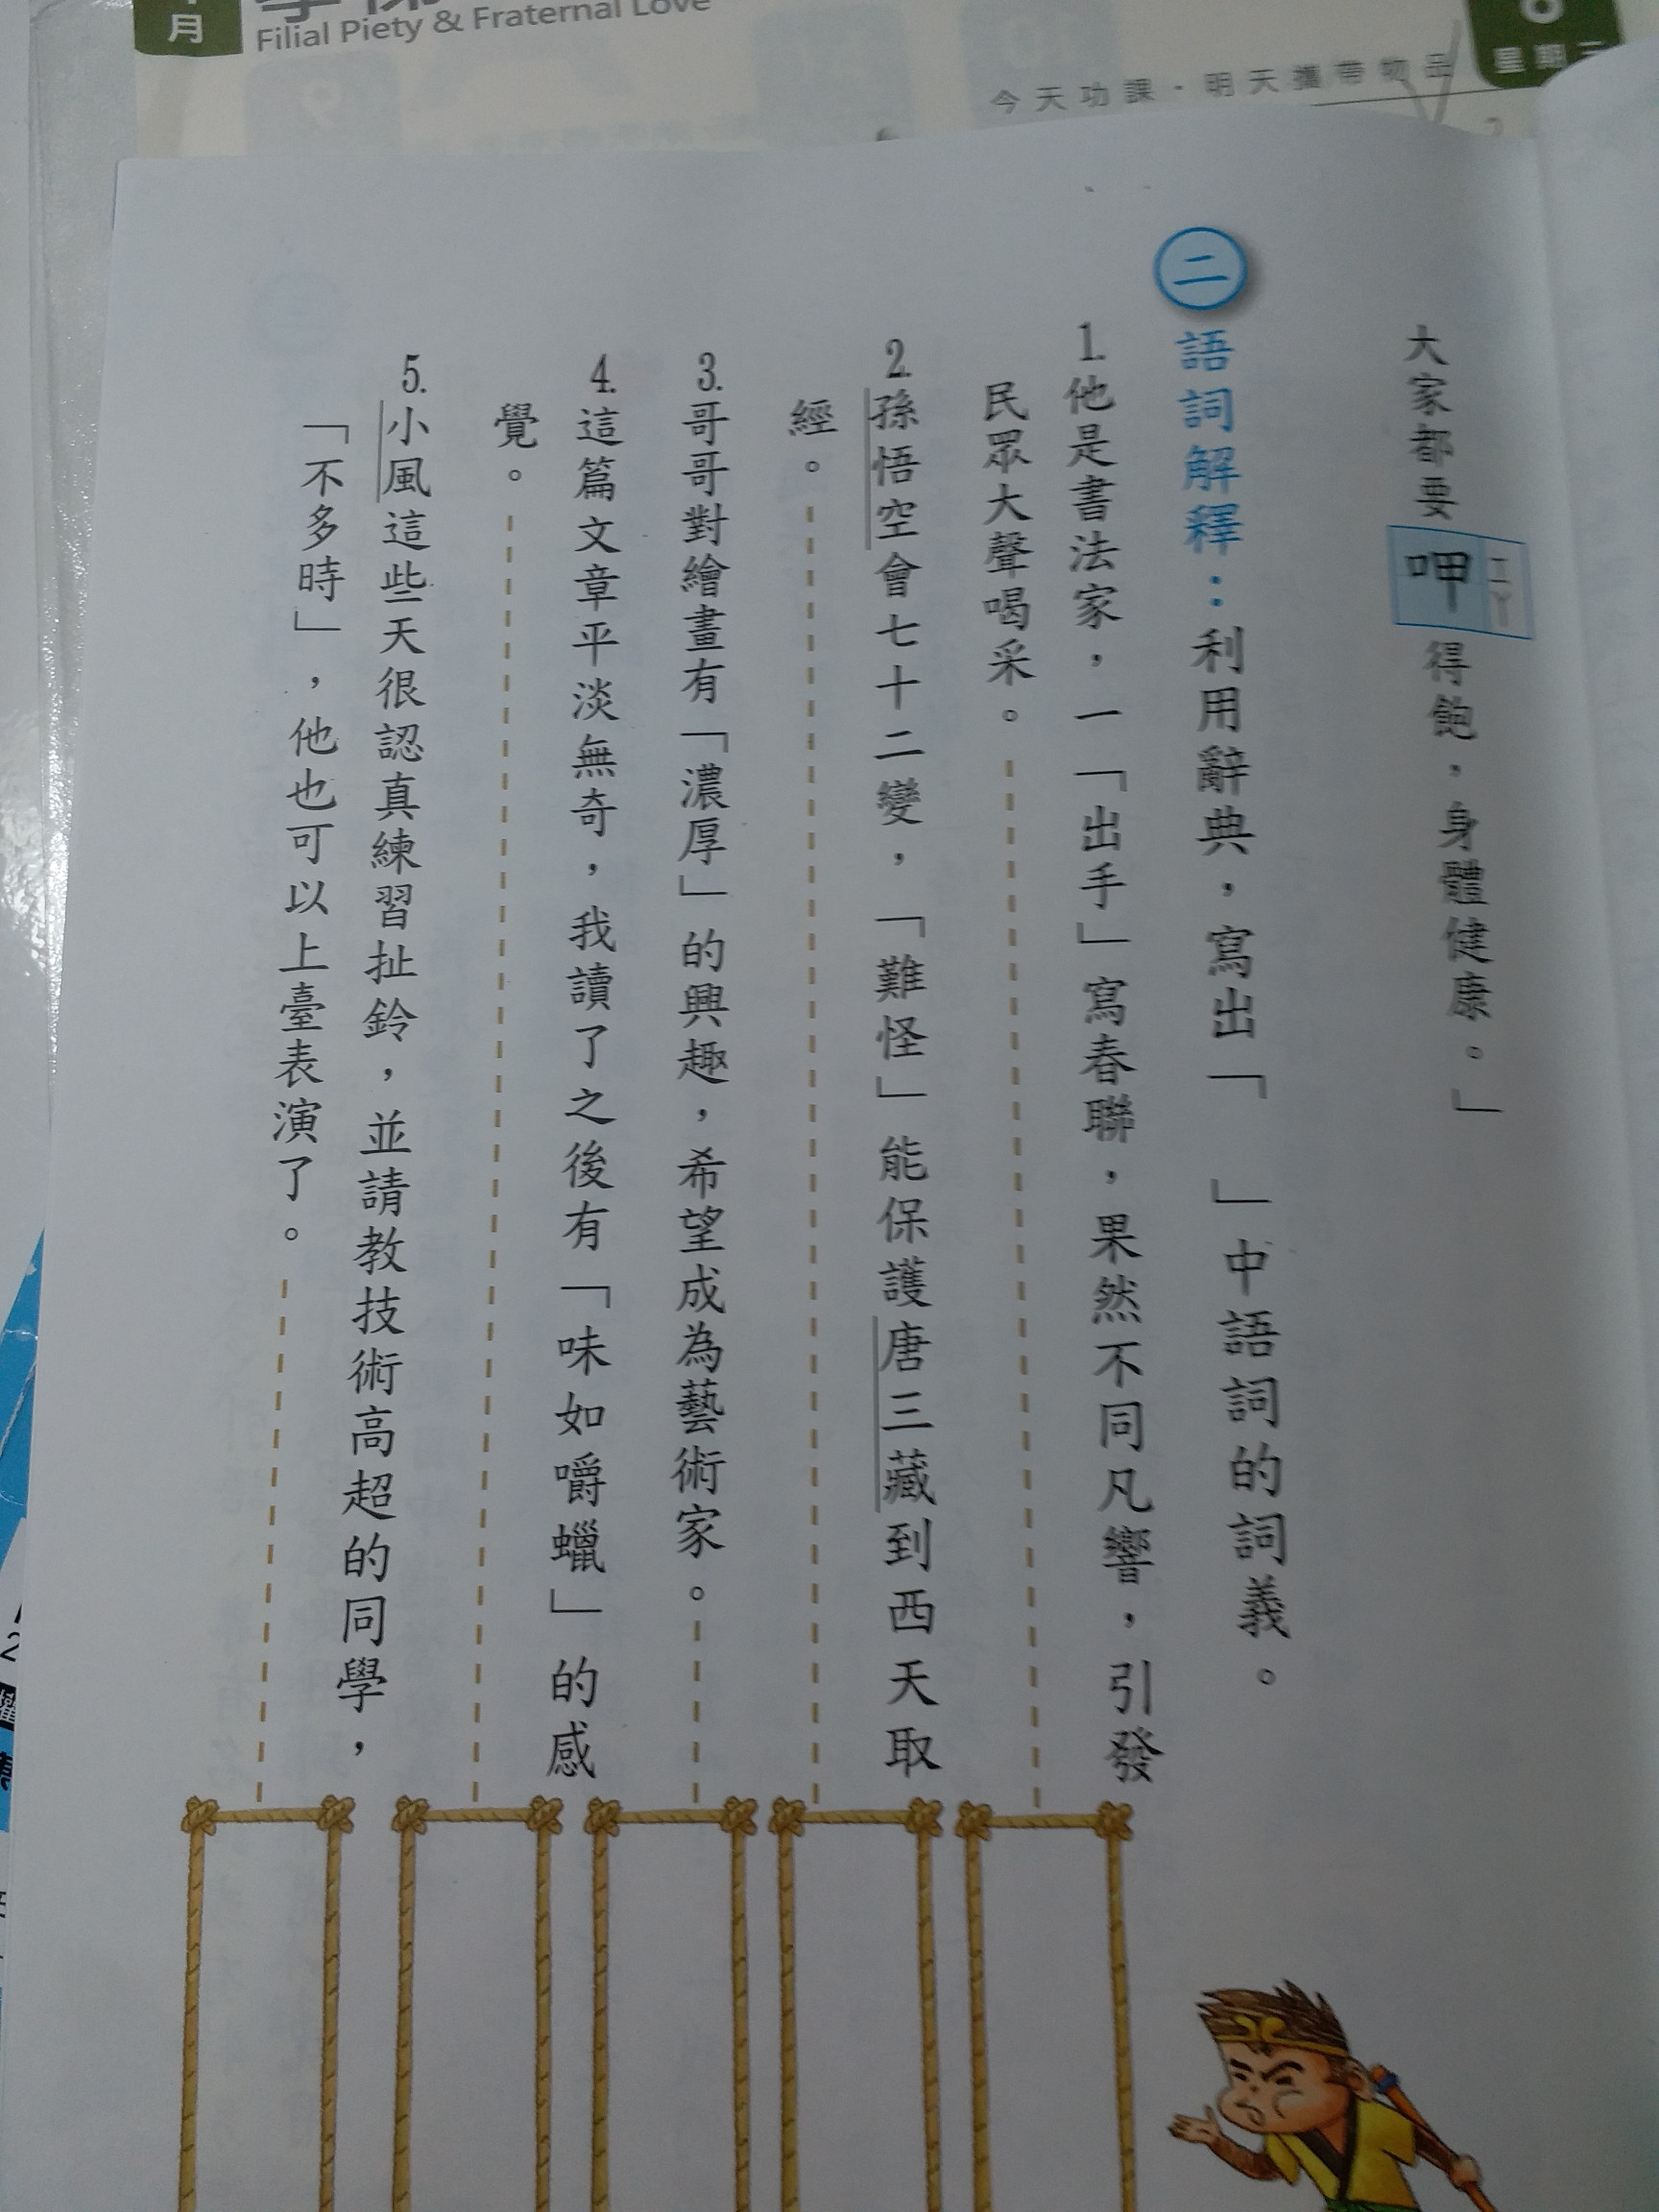 月
Filial Piety & Fraternal Love
今天功課・明天攜帶物品
大家都要呷ㄒㄧㄚ得飽，身體健康。」
二 語詞解釋：利用辭典，寫出「　」中語詞的詞義。
1.他是書法家，一「出手」寫春聯，果然不同凡響，引發
民眾大聲喝采。
2.孫悟空會七十二變，「難怪」能保護唐三藏到西天取
經。
3.哥哥對繪畫有「濃厚」的興趣，希望成為藝術家。
4.這篇文章平淡無奇，我讀了之後有「味如嚼蠟」的感
覺。
5.小風這些天很認真練習扯鈴，並請教技術高超的同學，
「不多時」，他也可以上臺表演了。